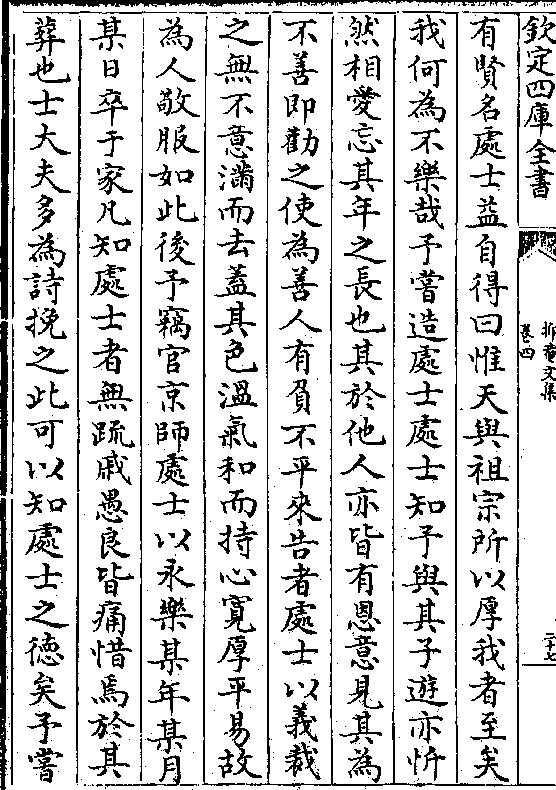 欽定四庫全書
抑菴文集
卷四
二十七
有賢名處士益自得曰惟天與祖宗所以厚我者至矣
我何為不樂哉予嘗造處士處士知予與其子遊亦忻
然相愛忘其年之長也其於他人亦皆有恩意見其為
不善即勸之使為善人有負不平來告者處士以義裁
之無不意滿而去蓋其色溫氣和而持心寛厚平易故
為人敬服如此後予竊官京師處士以永樂某年某月
某日卒于家凡知處士者無疏戚愚良皆痛惜焉於其
葬也士大夫多為詩挽之此可以知處士之徳矣予嘗